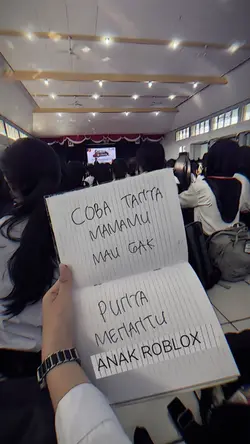 COBA TANYA
MAMAMU
MAU GAK
PUNYA
MENANTU
ANAK ROBLOX